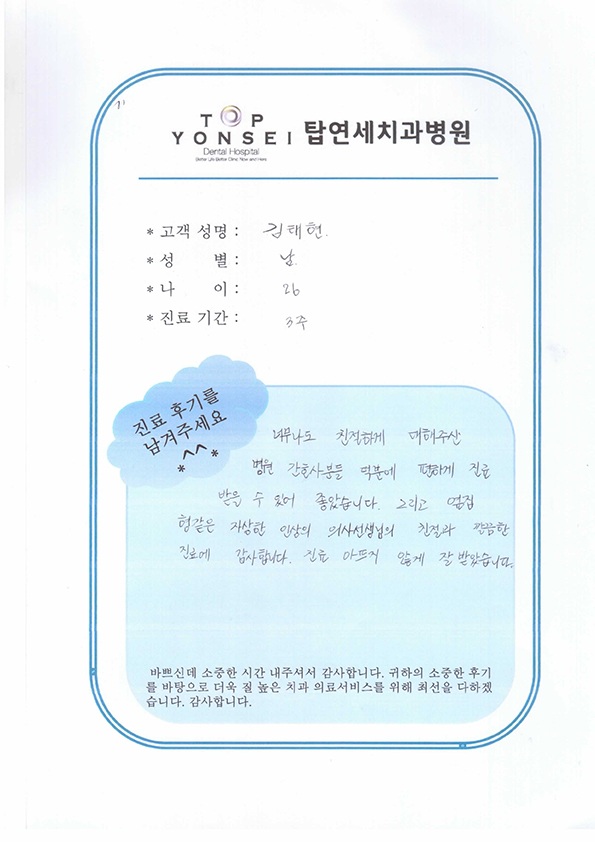 TOP
YONSEI 탑연세치과병원
Dental Hospital
Better Life Better Clinic Now and Here
* 고객 성명 : 김태현.
* 성 별 : 남.
* 나 이 : 26
* 진료 기간 : 3주
진료 후기를
남겨주세요
*^^*
너무나도 친적하게 대해주산
병원 간호사분들 덕분에 편하게 진료
받을 수 있어 좋았습니다. 그리고 옆집
형같은 자상한 인상의 의사선생님의 친절과 깔끔한
진료에 감사합니다. 진료 아프지 않게 잘 받았습니다.
바쁘신데 소중한 시간 내주셔서 감사합니다. 귀하의 소중한 후기
를 바탕으로 더욱 질 높은 치과 의료서비스를 위해 최선을 다하겠
습니다. 감사합니다.